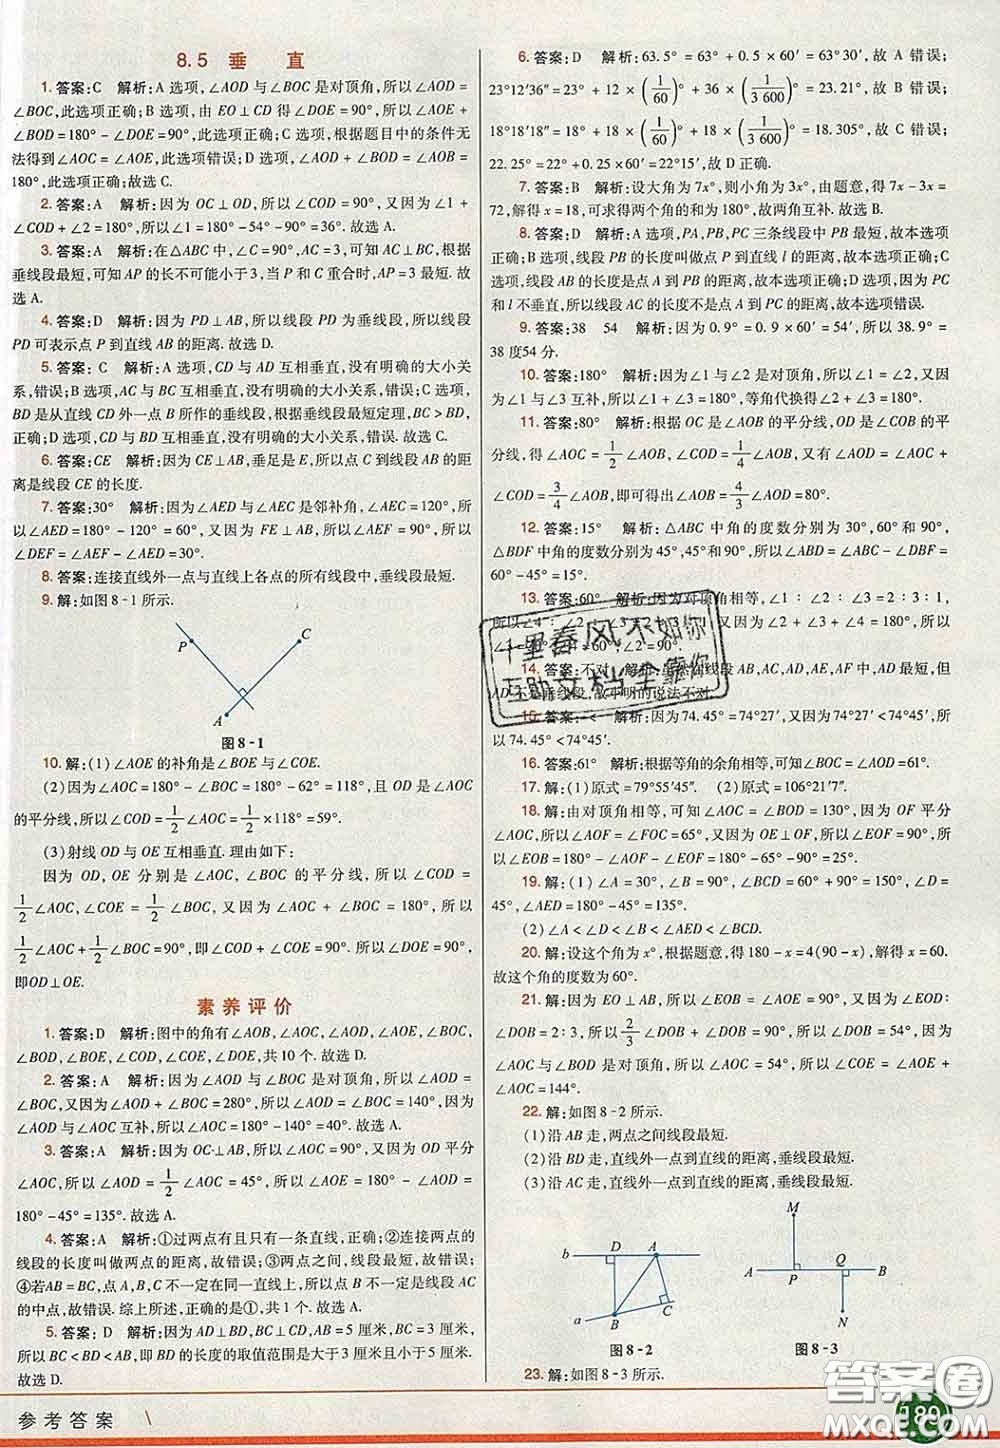 8.5 垂 直
1.答案:C 解析:A选项,∠AOD与∠BOC是对顶角,所以∠AOD =
∠BOC,此选项正确;B选项,由EO⊥CD得∠DOE=90°,所以∠AOE+
∠BOD=180°-∠DOE=90°,此选项正确;C选项,根据题目中的条件无
法得到∠AOC=∠AOE,此选项错误;D选项,∠AOD+∠BOD=∠AOB=
180°,此选项正确.故选C.
2.答案:A 解析:因为OC⊥OD,所以∠COD=90°,又因为∠1+
∠COD+∠2=180°,所以∠1=180°-54°-90°=36°.故选A.
3.答案:A 解析:在△ABC中,∠C=90°,AC=3,可知AC⊥BC,根据
垂线段最短,可知AP的长不可能小于3,当P和C重合时,AP=3最短.故
选A.
4.答案:D 解析:因为PD⊥AB,所以线段PD为垂线段,所以线段
PD可表示点P到直线AB的距离.故选D.
5.答案:C 解析:A选项,CD与AD互相垂直,没有明确的大小关
系,错误;B选项,AC与BC互相垂直,没有明确的大小关系,错误;C选项,
BD是从直线CD外一点B所作的垂线段,根据垂线段最短定理,BC>BD,
正确;D选项,CD与BD互相垂直,没有明确的大小关系,错误.故选C.
6.答案:CE 解析:因为CE⊥AB,垂足是E,所以点C到线段AB的距
离是线段CE的长度.
7.答案:30° 解析:因为∠AED与∠AEC是邻补角,∠AEC=120°,所
以∠AED=180°-120°=60°,又因为FE⊥AB,所以∠AEF=90°,所以
∠DEF=∠AEF-∠AED=30°.
8.答案:连接直线外一点与直线上各点的所有线段中,垂线段最短.
9.解:如图8-1所示.
P
C
A
图8-1
10.解:(1)∠AOE的补角是∠BOE与∠COE.
(2)因为∠AOC=180°-∠BOC=180°-62°=118°,OD是∠AOC
的平分线,所以∠COD=1/2∠AOC=1/2×118°=59°.
(3)射线OD与OE互相垂直.理由如下:
因为OD,OE分别是∠AOC,∠BOC的平分线,所以∠COD=
1/2∠AOC,∠COE=1/2∠BOC,又因为∠AOC+∠BOC=180°,所以
1/2∠AOC+1/2∠BOC=90°,即∠COD+∠COE=90°.所以∠DOE=90°,
即OD⊥OE.
素养评价
1.答案:D 解析:图中的角有∠AOB,∠AOC,∠AOD,∠AOE,∠BOC,
∠BOD,∠BOE,∠COD,∠COE,∠DOE,共10个.故选D.
2.答案:A 解析:因为∠AOD与∠BOC是对顶角,所以∠AOD=
∠BOC,又因为∠AOD+∠BOC=280°,所以∠AOD=∠BOC=140°,因为
∠AOD与∠AOC互补,所以∠AOC=180°-140°=40°.故选A.
3.答案:A 解析:因为OC⊥AB,所以∠AOC=90°,又因为OD平分
∠AOC,所以∠AOD=1/2∠AOC=45°,所以∠AOE=180°-∠AOD=
180°-45°=135°.故选A.
4.答案:A 解析:①过两点有且只有一条直线,正确;②连接两点的
线段的长度叫做两点的距离,故错误;③两点之间,线段最短,故错误;
④若AB=BC,点A,B,C不一定在同一直线上,所以点B不一定是线段AC
的中点,故错误.综上所述,正确的是①,共1个.故选A.
5.答案:D 解析:因为AD⊥BD,BC⊥CD,AB=5厘米,BC=3厘米,
所以BC<BD<AB,即BD的长度的取值范围是大于3厘米且小于5厘米.
故选D.
6.答案:D 解析:63.5°=63°+0.5×60′=63°30′,故A错误;
23°12′36″=23°+12×(1/60)°+36×(1/3 600)°=23.21°,故B错误;
18°18′18″=18°+18×(1/60)°+18×(1/3 600)°=18.305°,故C错误;
22.25°=22°+0.25×60′=22°15′,故D正确.
7.答案:B 解析:设大角为7x°,则小角为3x°,由题意,得7x-3x=
72,解得x=18,可求得两个角的和为180°,故两角互补.故选B.
8.答案:D 解析:A选项,PA,PB,PC三条线段中PB最短,故本选项
正确;B选项,线段PB的长度叫做点P到直线l的距离,故本选项正确;C
选项,线段AB的长度是点A到PB的距离,故本选项正确;D选项,因为PC
和l不垂直,所以线段AC的长度不是点A到PC的距离,故本选项错误.
9.答案:38 54 解析:因为0.9°=0.9×60′=54′,所以38.9°=
38度54分.
10.答案:180° 解析:因为∠1与∠2是对顶角,所以∠1=∠2,又因为
∠2与∠3互补,所以∠2+∠3=180°,等角代换得∠1+∠3=180°.
11.答案:80° 解析:根据OC是∠AOB的平分线,OD是∠COB的平
分线,得∠AOC=1/2∠AOB,∠COD=1/4∠AOB,又因为∠AOD=∠AOC
+∠COD=3/4∠AOB,即可得出∠AOB=4/3∠AOD=80°.
12.答案:15° 解析:△ABC中角的度数分别为30°,60°和90°,
△BDF中角的度数分别为45°,45°和90°.所以∠ABD=∠ABC-∠DBF=
60°-45°=15°.
13.答案:60° 解析:因为对顶角相等,∠1:∠2:∠3=1:2:3,
14.答案:不对
15.答案:< 解析:因为74.45°=74°27′,又因为74°27′<74°45′,所
以74.45°<74°45′.
16.答案:61° 解析:根据等角的余角相等,可知∠BOC=∠AOD=61°.
17.解:(1)原式=79°55′45″. (2)原式=106°21′7″.
18.解:由对顶角相等,可知∠AOC=∠BOD=130°,因为OF平分
∠AOC,所以∠AOF=∠FOC=65°,又因为OE⊥OF,所以∠EOF=90°,所
以∠EOB=180°-∠AOF-∠EOF=180°-65°-90°=25°.
19.解:(1)∠A=30°,∠B=90°,∠BCD=60°+90°=150°,∠D=
45°,∠AED=90°+45°=135°.
(2)∠A<∠D<∠B<∠AED<∠BCD.
20.解:设这个角为x°,根据题意,得180-x=4(90-x),解得x=60.
故这个角的度数为60°.
21.解:因为EO⊥AB,所以∠EOB=90°,又因为∠EOD:
∠DOB=2:3,所以2/3∠DOB+∠DOB=90°,所以∠DOB=54°,因为
∠AOC与∠BOD是对顶角,所以∠AOC=54°,所以∠COE=∠AOE+
∠AOC=144°.
22.解:如图8-2所示.
(1)沿AB走,两点之间线段最短.
(2)沿BD走,直线外一点到直线的距离,垂线段最短.
(3)沿AC走,直线外一点到直线的距离,垂线段最短.
b D A
a B C
图8-2
M
A P Q B
N
图8-3
23.解:如图8-3所示.
十里春风不如你
互助文档全靠你
参考答案
189
答案圈
MXQE.COM